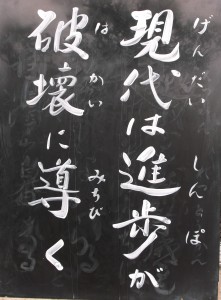 現代は進歩が
げんだい しんぽ
破壊に導く
はかい みちび